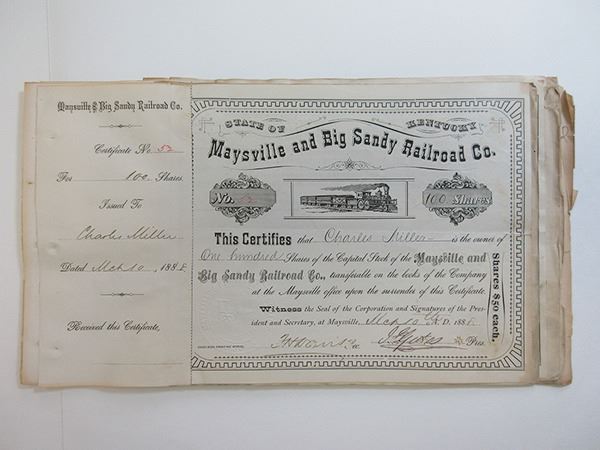 Maysville & Big Sandy Railroad Co.
Certificate No. 52
For 100 Shares.
Issued To
Charles Miller
Dated Mch 10, 188
Received this Certificate,
STATE OF KENTUCKY
Maysville and Big Sandy Railroad Co.
No. 52 100 Shares
This Certifies that Charles Miller is the owner of
One hundred Shares of the Capital Stock of the Maysville and
Big Sandy Railroad Co., transferable on the books of the Company
at the Maysville office upon the surrender of this Certificate.
Witness the Seal of the Corporation and Signatures of the Pres-
ident and Secretary, at Maysville, Mch 10 A.D. 188
Sec. Pres.
Shares $50 each.